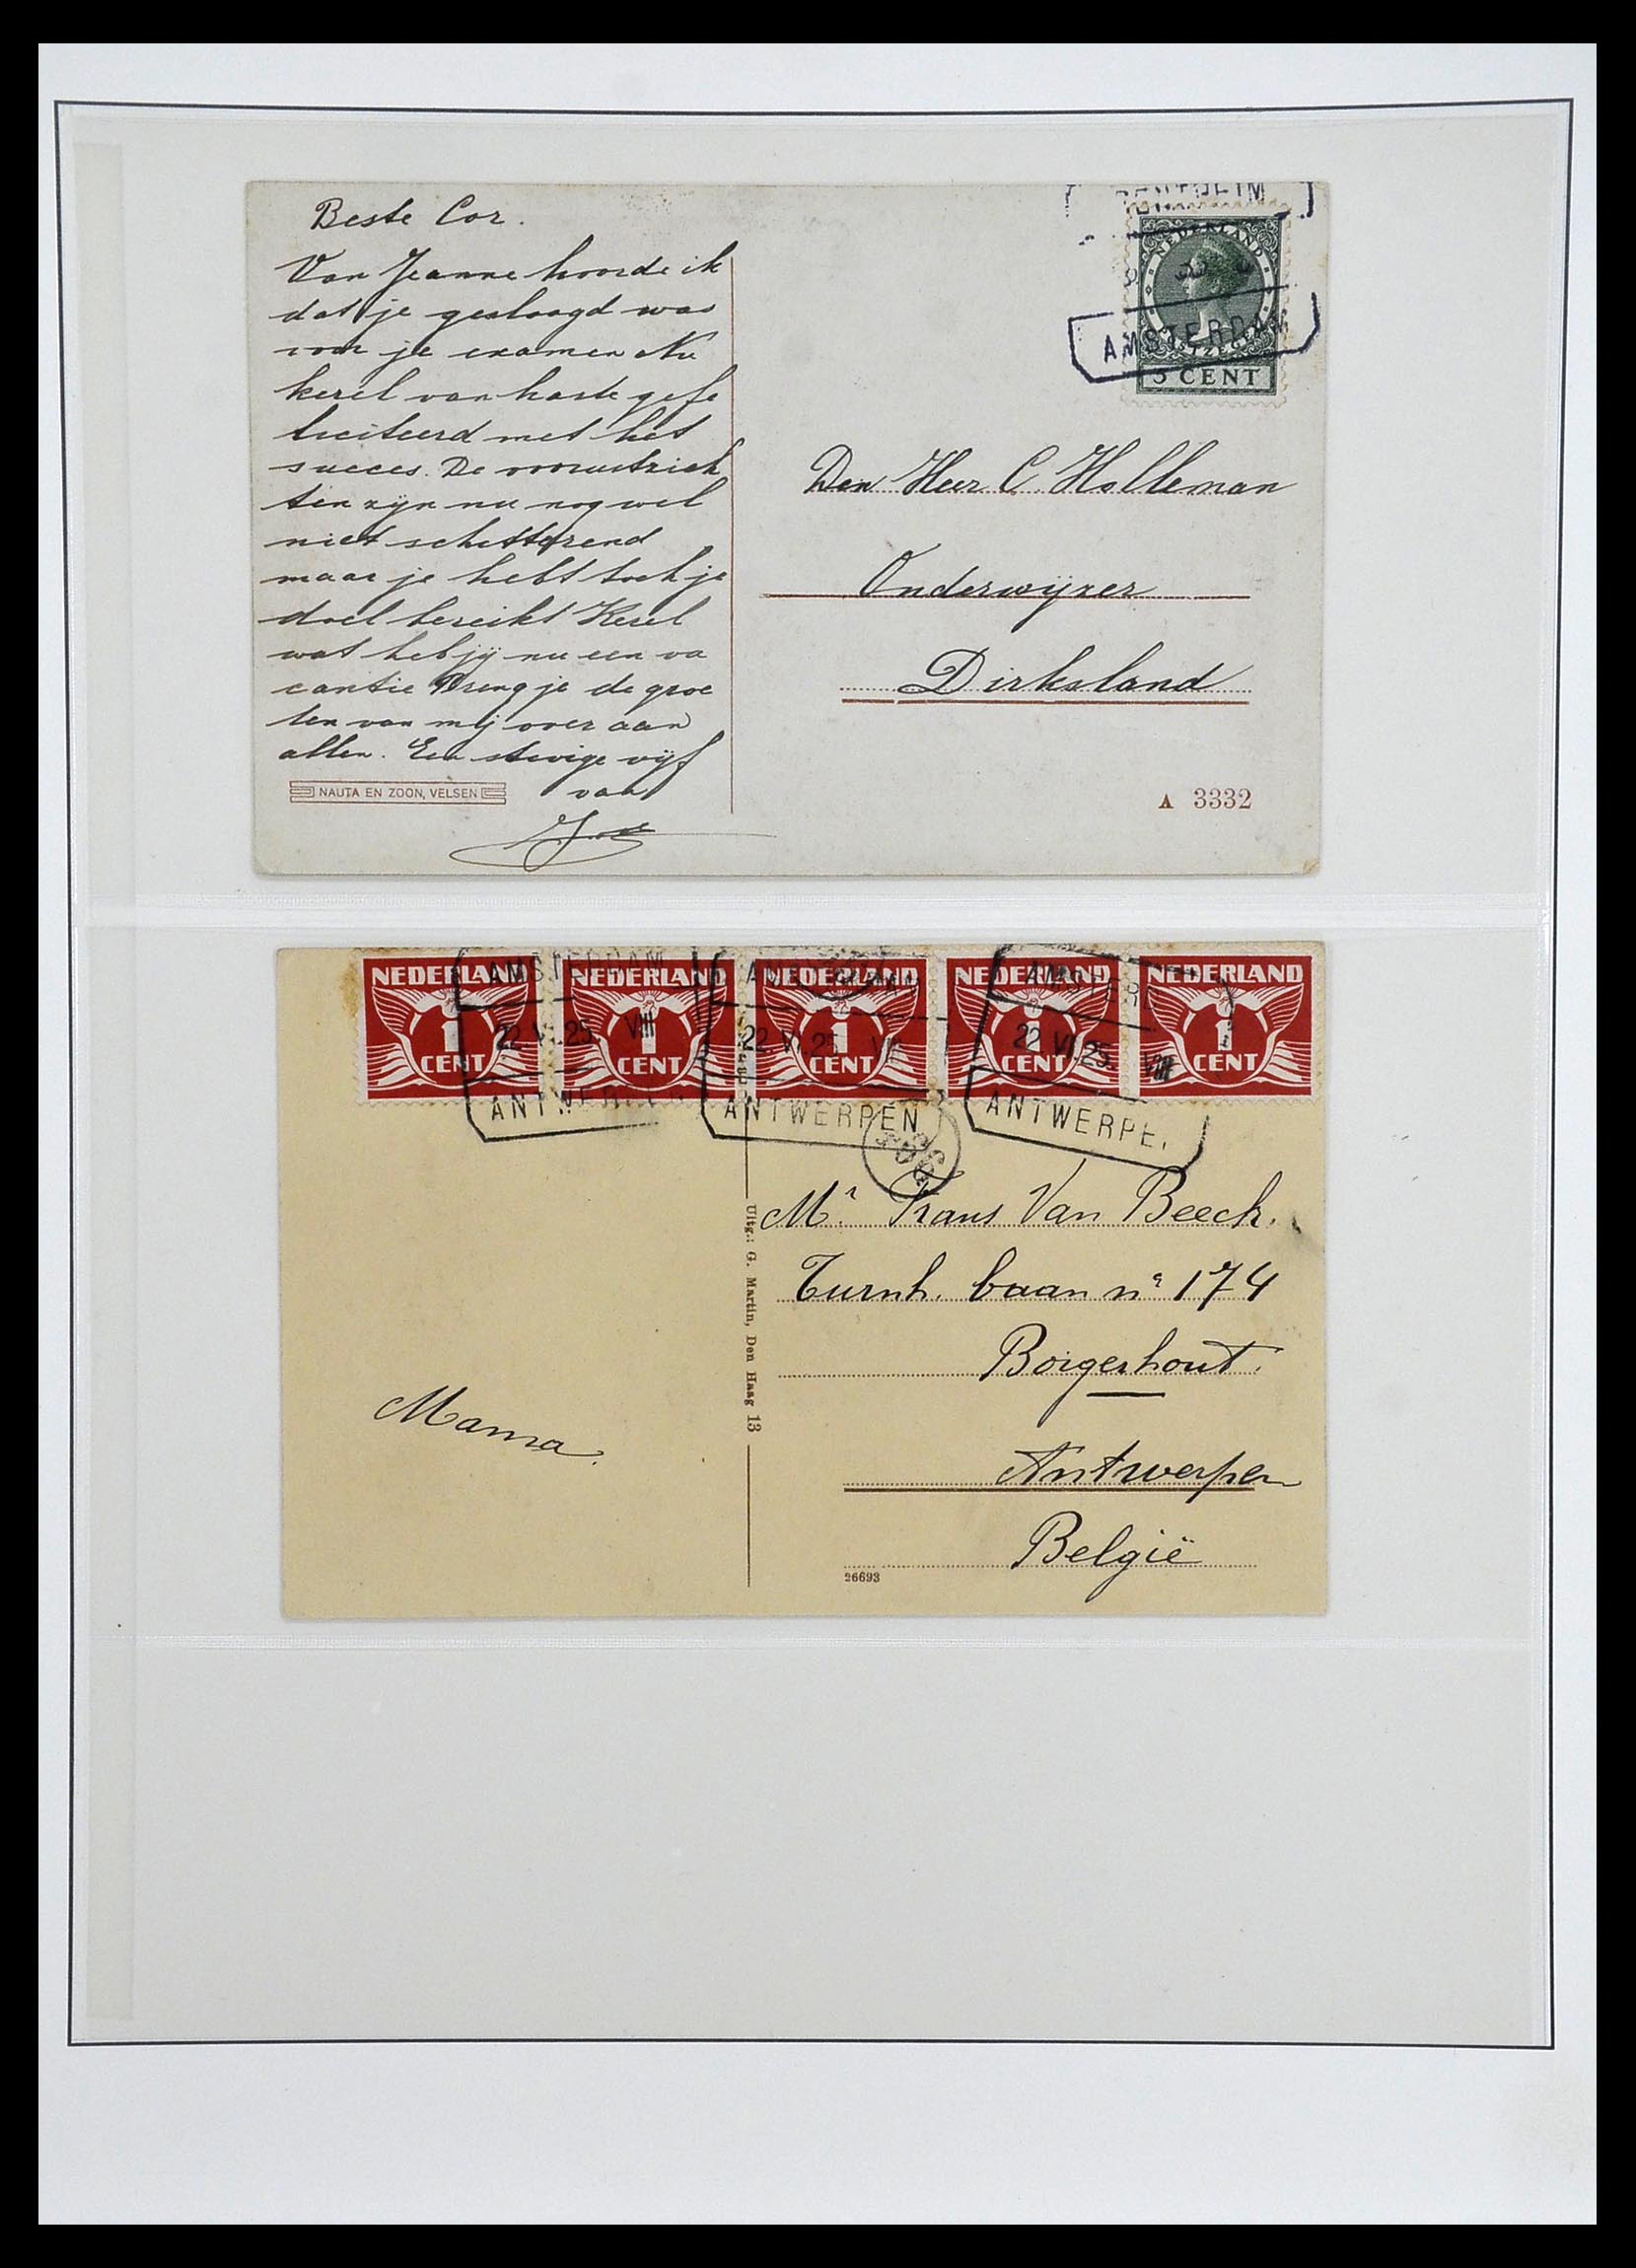 Beste Cor.
Van Jeanne hoorde ik
dat je geslaagd was
voor je examen Nu
kerel van harte gefe
liciteerd met het
succes. De vooruitzich
ten zijn nu nog wel
niet schitterend
maar je hebt toch je
doel bereikt Kerel
wat heb jij nu een va
cantie Breng je de groe
ten van mij over aan
allen. Een stevige vijf
van
NAUTA EN ZOON, VELSEN
NEDERLAND
AMSTERDAM
5 CENT
Den Heer C Holleman
Onderwijzer
Dirksland
A 3332
NEDERLAND NEDERLAND NEDERLAND NEDERLAND NEDERLAND
1 1 1 1 1
CENT CENT CENT CENT CENT
AMSTERDAM
22.VI.25. VIII
ANTWERPEN
22 VI.25
ANTWERPEN
AMSTER
22 VI.25. VIII
ANTWERPE.
Mr Frans Van Beeck.
Turnh. baan no 174
Borgerhout.
Antwerpen
België
Mama.
Uitg.: G. Martin, Den Haag 13
26693